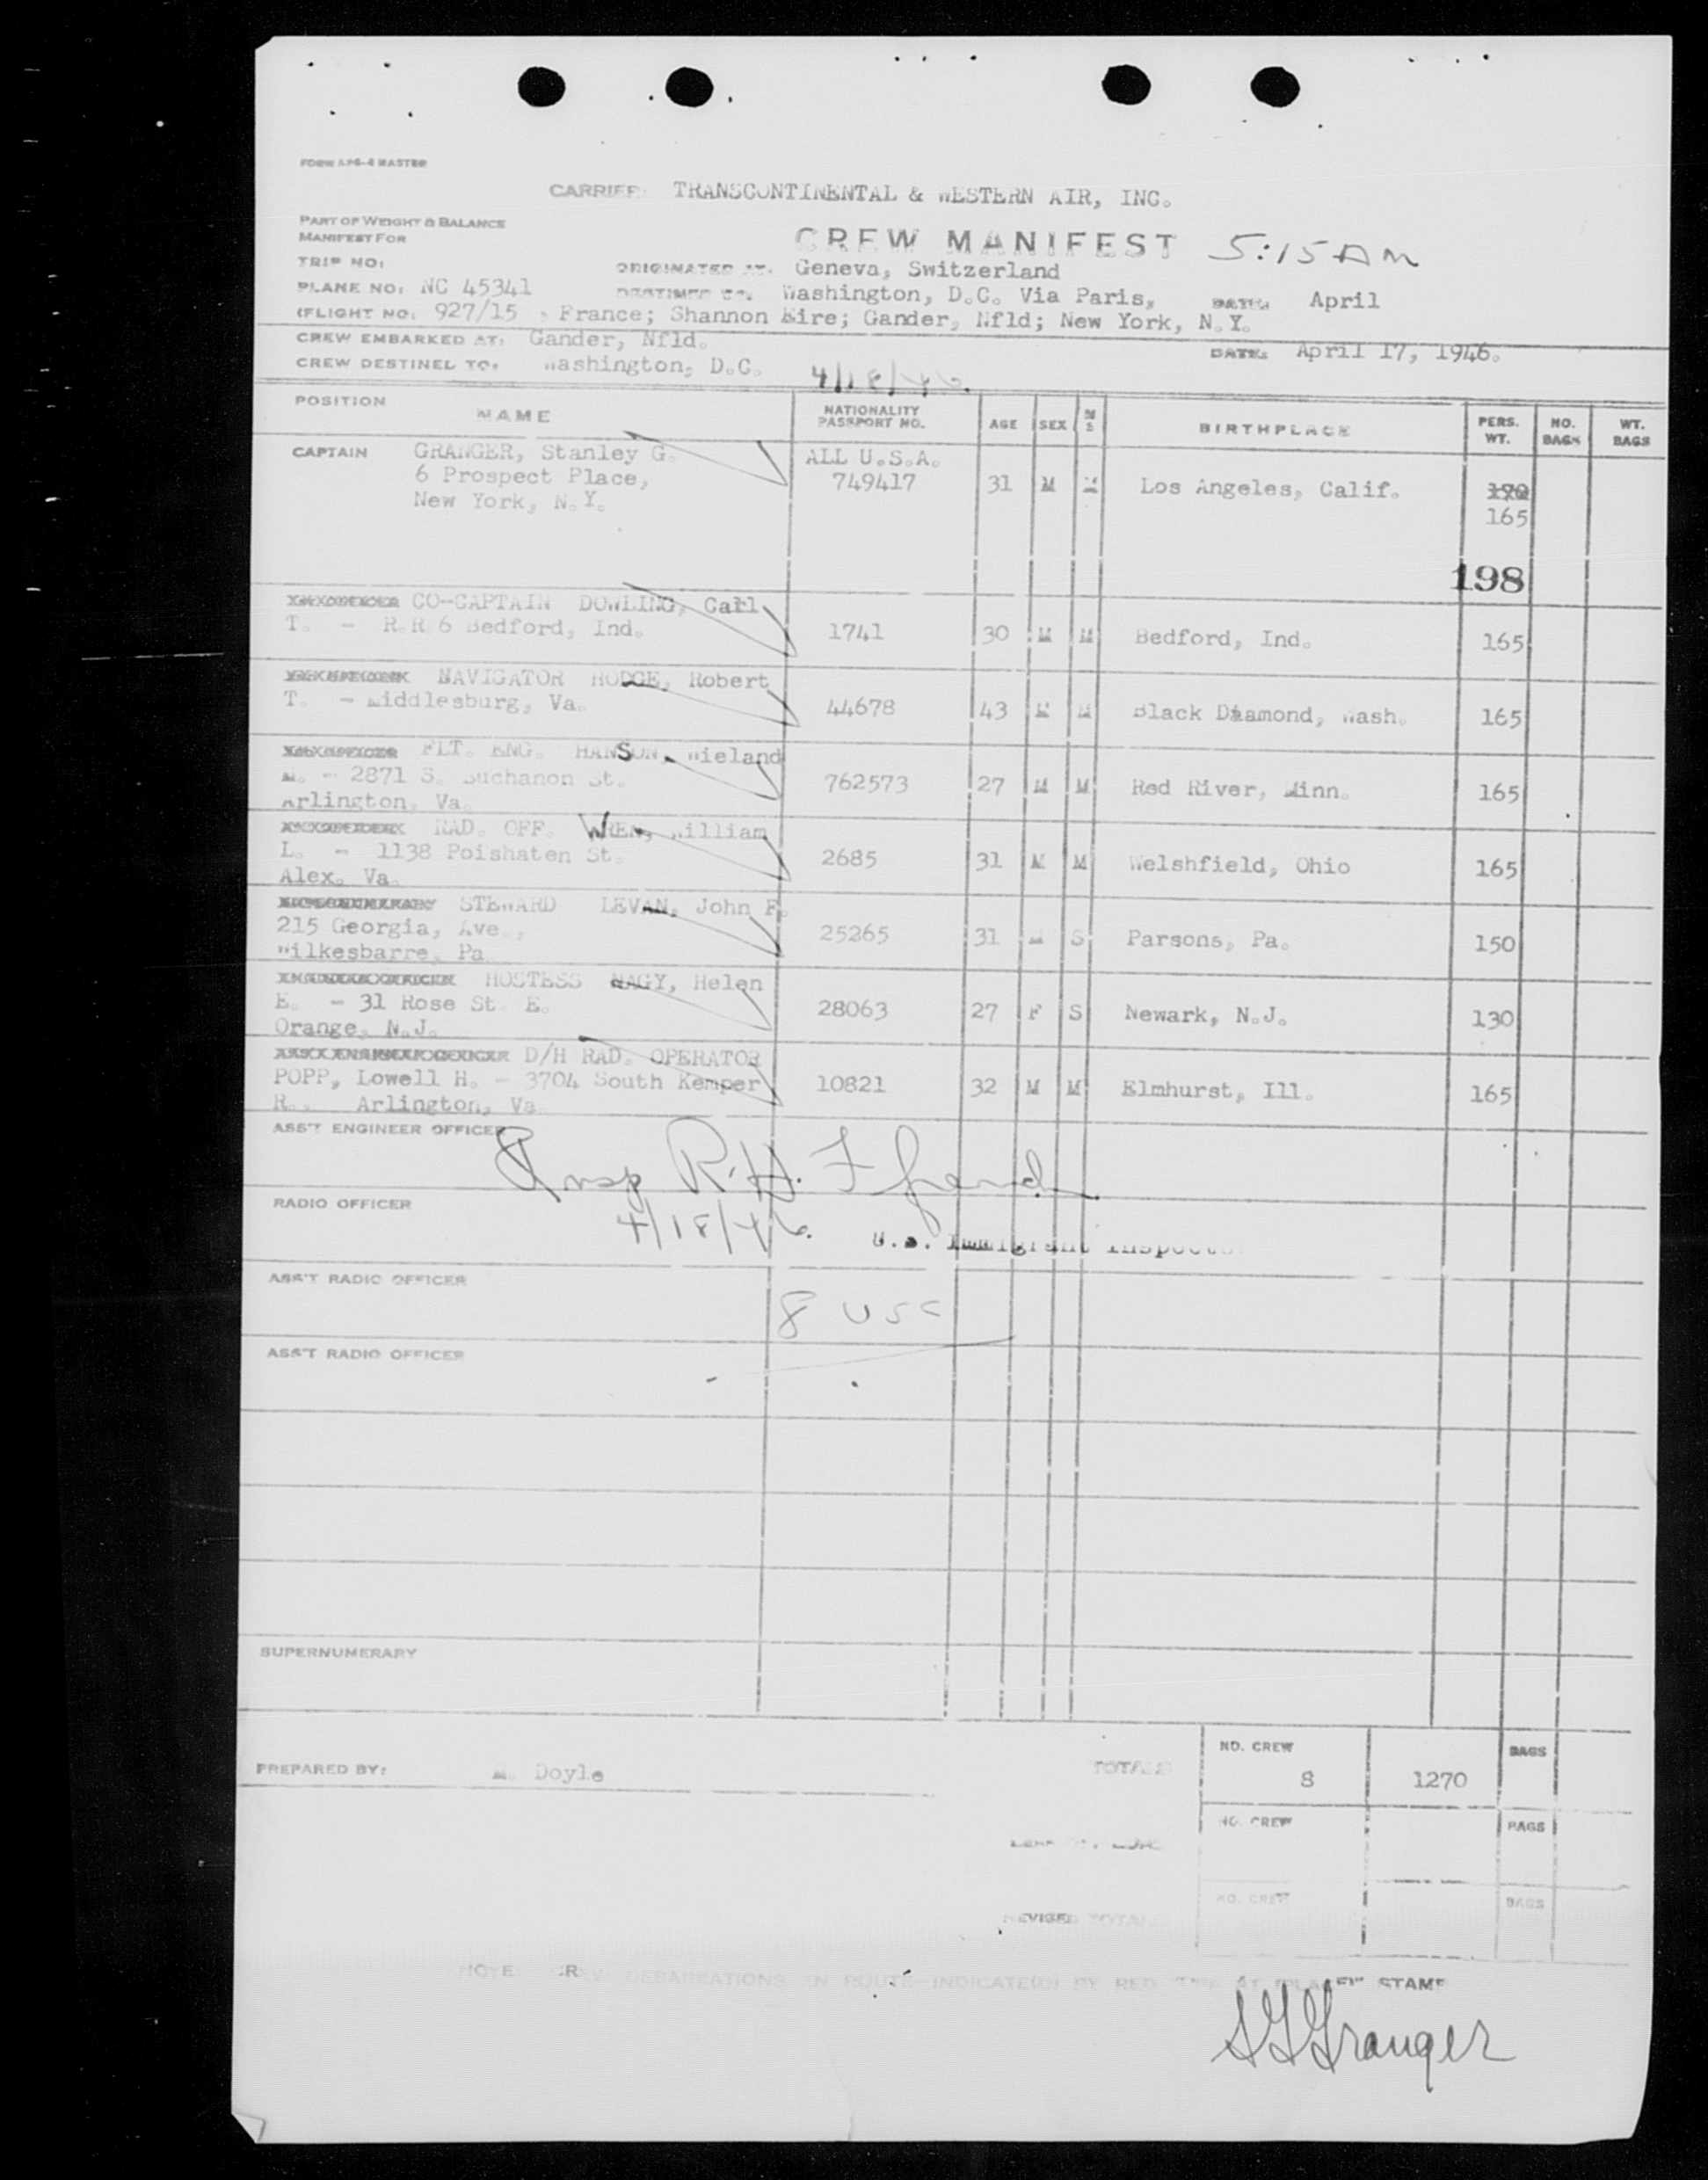 FORM APS-4 MASTER
CARRIER: TRANSCONTINENTAL & WESTERN AIR, INC.
PART OF WEIGHT & BALANCE
MANIFEST FOR
CREW MANIFEST 5:15 AM
TRIP NO:
ORIGINATED AT: Geneva, Switzerland
PLANE NO: NC 45341
DESTINED TO: Washington, D.C. Via Paris, DATE: April
FLIGHT NO: 927/15 France; Shannon Eire; Gander, Nfld; New York, N.Y.
CREW EMBARKED AT: Gander, Nfld. DATE: April 17, 1946.
CREW DESTINED TO: Washington, D.C. 4/18/46.
POSITION NAME NATIONALITY PASSPORT NO. AGE SEX M S BIRTHPLACE PERS. WT. NO. BAGS WT. BAGS
CAPTAIN GRANGER, Stanley G. ALL U.S.A.
6 Prospect Place, 749417 31 M M Los Angeles, Calif. 170
New York, N.Y. 165
198
CO-CAPTAIN DOWLING, Carl
T. - R.R 6 Bedford, Ind. 1741 30 M M Bedford, Ind. 165
NAVIGATOR HODGE, Robert
T. - Middlesburg, Va. 44678 43 M M Black Diamond, Wash. 165
FLT. ENG. HANSON, Wieland
M. - 2871 S. Buchanon St. 762573 27 M M Red River, Minn. 165
Arlington, Va.
RAD. OFF. WREN, William
L. - 1138 Poishaten St. 2685 31 M M Welshfield, Ohio 165
Alex. Va.
STEWARD LEVAN, John F.
215 Georgia, Ave., 25265 31 M S Parsons, Pa. 150
Wilkesbarre, Pa.
HOSTESS NAGY, Helen
E. - 31 Rose St. E. 28063 27 F S Newark, N.J. 130
Orange, N.J.
D/H RAD. OPERATOR
POPP, Lowell H. - 3704 South Kemper 10821 32 M M Elmhurst, Ill. 165
R., Arlington, Va.
ASS'T ENGINEER OFFICER
R.H.
RADIO OFFICER
4/18/46. U.S. Immigrant Inspector
ASS'T RADIO OFFICER
8 USC
ASS'T RADIO OFFICER
SUPERNUMERARY
PREPARED BY: M. Doyle TOTALS NO. CREW 8 1270 BAGS
NO. CREW BAGS
REVISED TOTAL NO. CREW BAGS
NOTE: CREW DEBARKATIONS EN ROUTE INDICATED BY RED STAMP
S G Granger